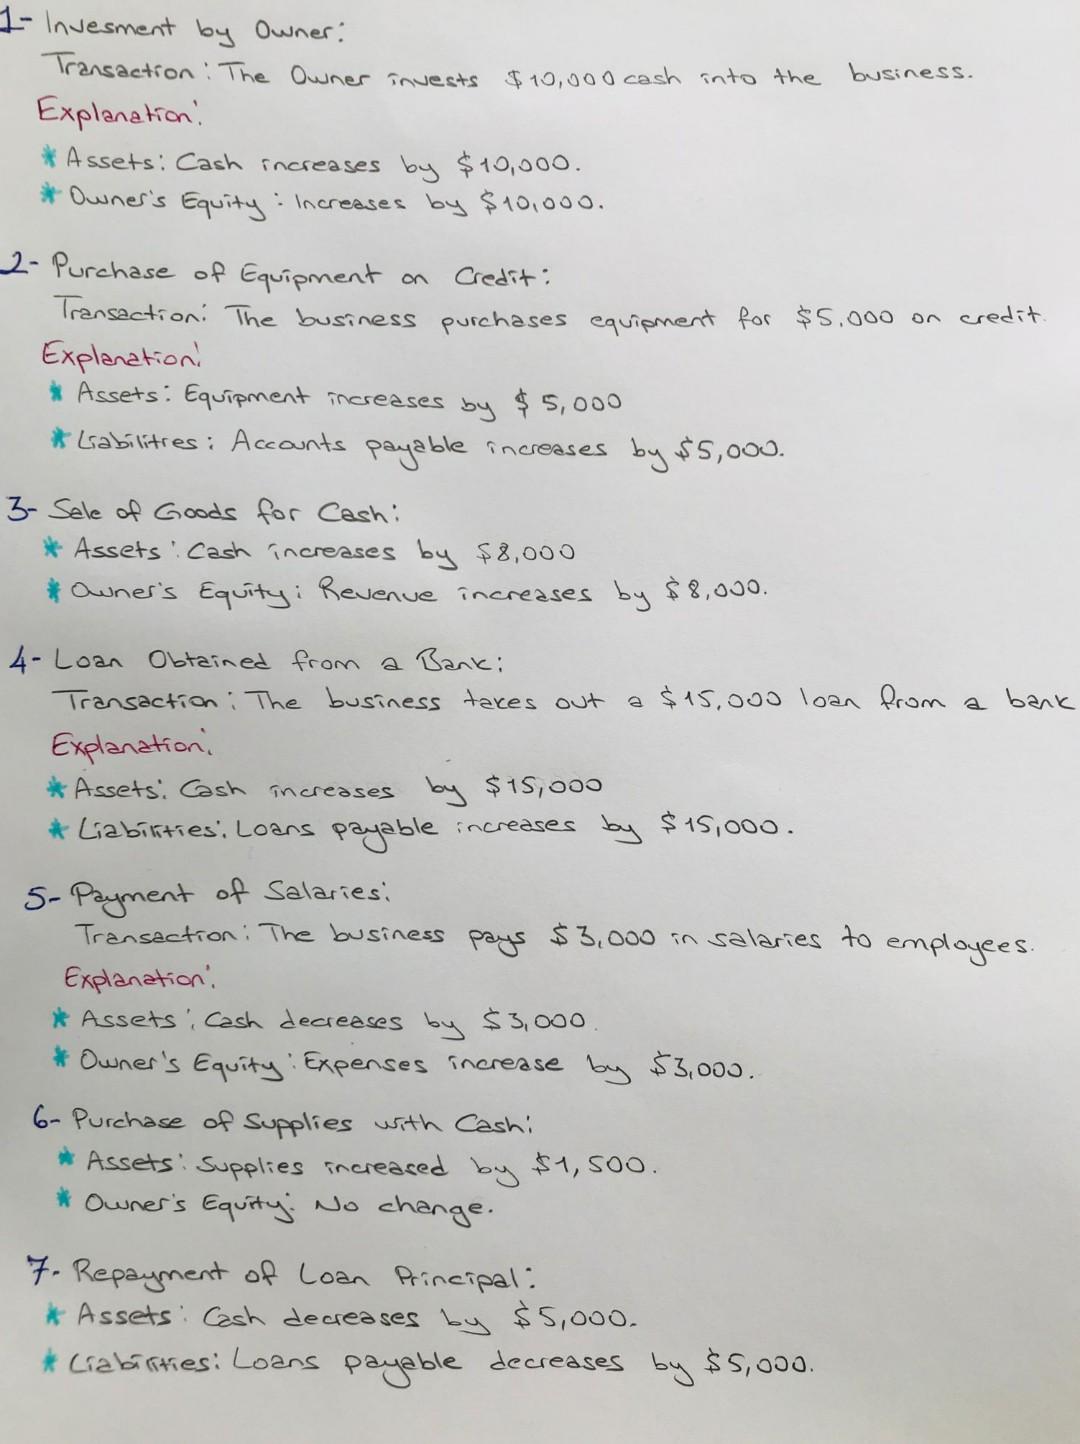 1- Invesment by Owner:
Transaction: The Owner invests $10,000 cash into the business.
Explanation:
* Assets: Cash increases by $10,000.
* Owner's Equity: Increases by $10,000.
2- Purchase of Equipment on Credit:
Transaction: The business purchases equipment for $5.000 on credit.
Explanation:
* Assets: Equipment increases by $5,000
* Liabilitres: Accounts payable increases by $5,000.
3- Sale of Goods for Cash:
* Assets: Cash increases by $8,000
* Owner's Equity: Revenue increases by $8,000.
4- Loan Obtained from a Bank:
Transaction: The business takes out a $15,000 loan from a bank
Explanation:
* Assets: Cash increases by $15,000
* Liabilities: Loans payable increases by $15,000.
5- Payment of Salaries:
Transaction: The business pays $3,000 in salaries to employees.
Explanation:
* Assets: Cash decreases by $3,000.
* Owner's Equity: Expenses increase by $3,000.
6- Purchase of Supplies with Cash:
* Assets: Supplies increased by $1,500.
* Owner's Equity: No change.
7- Repayment of Loan Principal:
* Assets: Cash decreases by $5,000.
* Liabilities: Loans payable decreases by $5,000.